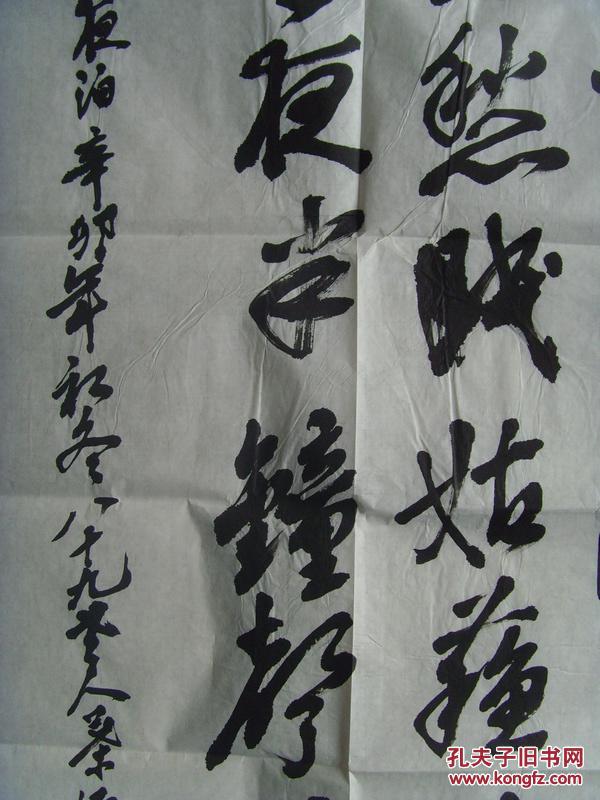 愁眠姑蘇
夜半鐘聲
夜泊辛卯年初冬八十九老人秦
孔夫子旧书网
www.kongfz.com